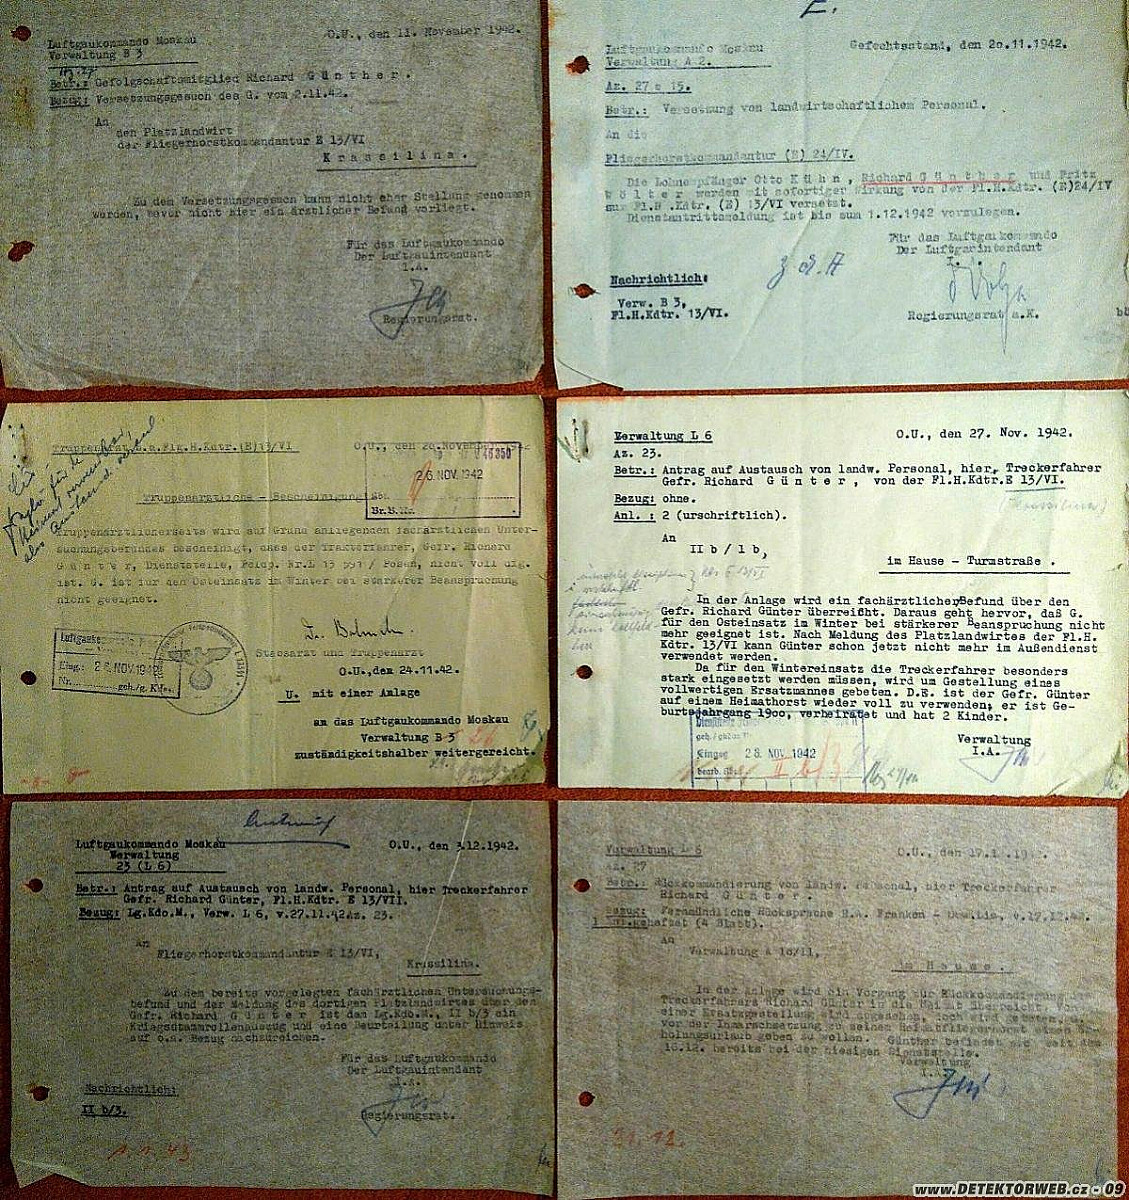 Luftgaukommando Moskau
Verwaltung B 3
O.U., den 11. November 1942.
Betr.: Gefolgschaftsmitglied Richard G ü n t h e r .
Bezug: Versetzungsgesuch des G. vom 2.11.42.
An
den Platzlandwirt
der Fliegerhorstkommandantur E 13/VI
K r a s s i l i n a .
Zu dem Versetzungsgesuch kann nicht eher Stellung genommen
werden, bevor nicht hier ein ärztlicher Befund vorliegt.
Für das Luftgaukommando
Der Luftgauintendant
I.A.
Regierungsrat.
Luftgaukommando Moskau
Verwaltung A 2.
Gefechtsstand, den 20.11.1942.
Az. 27 e 15.
Betr.: Versetzung von landwirtschaftlichem Personal.
An die
Fliegerhorstkommandantur (E) 24/IV.
Die Lohnempfänger Otto K ü h n , Richard G ü n t h e r und Fritz
W ö l t e r werden mit sofortiger Wirkung von der Fl.H.Kdtr. (E)24/IV
zur Fl.H.Kdtr. (E) 13/VI versetzt.
Dienstantrittsmeldung ist bis zum 1.12.1942 vorzulegen.
Für das Luftgaukommando
Der Luftgauintendant
Nachrichtlich:
Verw. B 3,
Fl.H.Kdtr. 13/VI.
Regierungsrat a.K.
Truppenarzt b.d. Flg.H.Kdtr.(E)13/VI
O.U., den 20.November
26. NOV. 1942
Truppenärztliche - Bescheinigung
Truppenärztlicherseits wird auf Grund anliegenden fachärztlichen Unter-
suchungsbefundes bescheinigt, dass der Traktorfahrer, Gefr. Richard
G ü n t e r, Dienststelle, Feldp. Nr.L / Posen, nicht voll
ist. G. ist für den Osteinsatz im Winter bei stärkerer Beanspruchung
nicht geeignet.
Stabsarzt und Truppenarzt
O.U., den 24.11.42.
U. mit einer Anlage
an das Luftgaukommando Moskau
Verwaltung B 3
zuständigkeitshalber weitergereicht.
Verwaltung L 6
O.U., den 27. Nov. 1942.
Az. 23.
Betr.: Antrag auf Austausch von landw. Personal, hier Treckerfahrer
Gefr. Richard G ü n t e r , von der Fl.H.Kdtr.E 13/VI.
Bezug: ohne.
Anl. : 2 (urschriftlich).
An
II b / 1 b,
im Hause - Turmstraße .
In der Anlage wird ein fachärztlicher Befund über den
Gefr. Richard Günter überreicht. Daraus geht hervor, daß G.
für den Osteinsatz im Winter bei stärkerer Beanspruchung nicht
mehr geeignet ist. Nach Meldung des Platzlandwirtes der Fl.H.
Kdtr. 13/VI kann Günter schon jetzt nicht mehr im Außendienst
verwendet werden.
Da für den Wintereinsatz die Treckerfahrer besonders
stark eingesetzt werden müssen, wird um Gestellung eines
vollwertigen Ersatzmannes gebeten. D.E. ist der Gefr. Günter
auf einem Heimathorst wieder voll zu verwenden; er ist Ge-
burtsjahrgang 1900, verheiratet und hat 2 Kinder.
Verwaltung
I.A.
28. NOV. 1942
Luftgaukommando Moskau
Verwaltung
23 (L 6)
O.U., den 3.12.1942.
Betr.: Antrag auf Austausch von landw. Personal, hier Treckerfahrer
Gefr. Richard Günter, Fl.H.Kdtr. E 13/VII.
Bezug: Lg.Kdo.M., Verw. L 6, v.27.11.42 Az. 23.
An
Fliegerhorstkommandantur E 13/VI,
Krassilina.
Zu dem bereits vorgelegten fachärztlichen Untersuchungs-
befund und der Meldung des dortigen Platzlandwirtes über den
Gefr. Richard G ü n t e r ist dem Lg.Kdo.M., II b/3 ein
Kriegsstammrollenauszug und eine Beurteilung unter Hinweis
auf o.a. Bezug nachzureichen.
Für das Luftgaukommando
Der Luftgauintendant
I.A.
Regierungsrat.
Nachrichtlich:
II b/3.
1.1.43
Verwaltung L 6
Az. 27
O.U., den 17.1
Betr.: Rückkommandierung von landw. Personal, hier Treckerfahrer
Richard G ü n t e r .
Bezug: Fernmündliche Rücksprache H.A. Franken - v.17.12.42.
1 Anl. geheftet (4 Blatt).
An
Verwaltung A
im H a u s e .
In der Anlage wird ein Vorgang zur Rückkommandierung des
Treckerfahrers Richard Günter in die Heimat überreicht. Von
einer Ersatzgestellung wird abgesehen, doch wird gebeten,
vor der Inmarschsetzung zu seinem Heimatfliegerhorst einen
holungsurlaub geben zu wollen. Günther befindet sich seit dem
16.12. bereits bei der hiesigen Dienststelle.
Verwaltung
I.A.
www.DETEKTORWEB.cz - 09